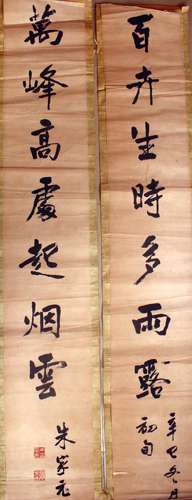 百卉生時多雨露
辛巳冬月
初旬
萬峰高處起烟雲
朱家元